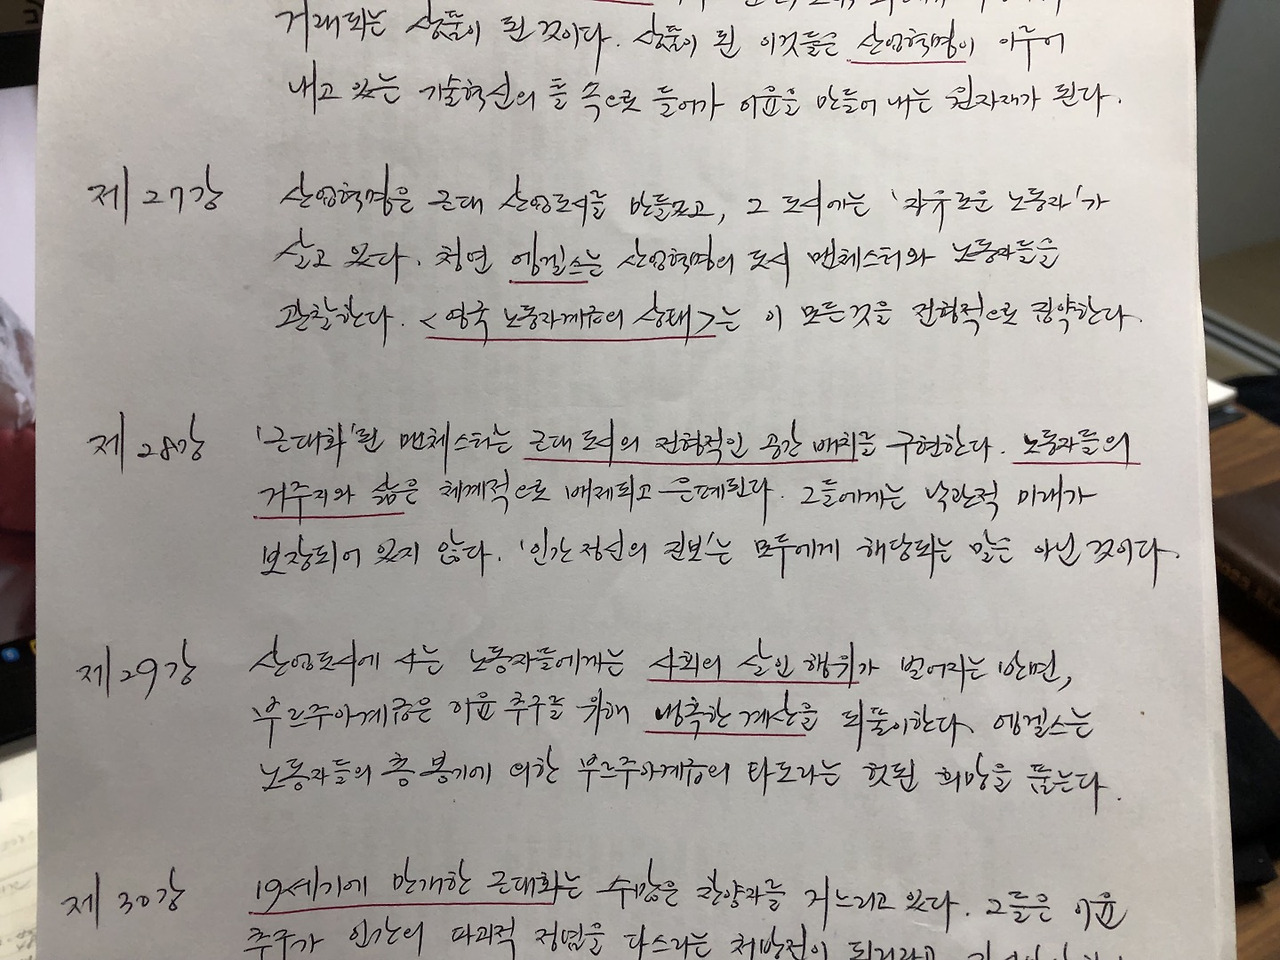 거래되는 상품이 된 것이다. 상품이 된 이것들은 산업혁명이 이루어
내고 있는 기술혁신의 틀 속으로 들어가 이윤을 만들어 내는 원자재가 된다.
제27강 산업혁명은 근대 산업도시를 만들고, 그 도시에는 '자유로운 노동자'가
살고 있다. 청년 엥겔스는 산업혁명의 도시 맨체스터와 노동자들을
관찰한다. <영국 노동자계급의 상태>는 이 모든것을 전형적으로 집약한다.
제28강 '근대화'된 맨체스터는 근대 도시의 전형적인 공간 배치를 구현한다. 노동자들의
거주지와 삶은 체계적으로 배제되고 은폐된다. 그들에게는 낙관적 미래가
보장되어 있지 않다. '인간 정신의 진보'는 모두에게 해당되는 말은 아닌 것이다.
제29강 산업도시에 사는 노동자들에게는 사회의 살인 행위가 벌어지는 반면,
부르주아계급은 이윤 추구를 위해 냉혹한 계산을 되풀이한다. 엥겔스는
노동자들의 총 봉기에 의한 부르주아계급의 타도라는 헛된 희망을 품는다.
제30강 19세기에 만개한 근대화는 수많은 찬양자를 거느리고 있다. 그들은 이윤
추구가 인간의 파괴적 정념을 다스리는 처방전이 되리라고